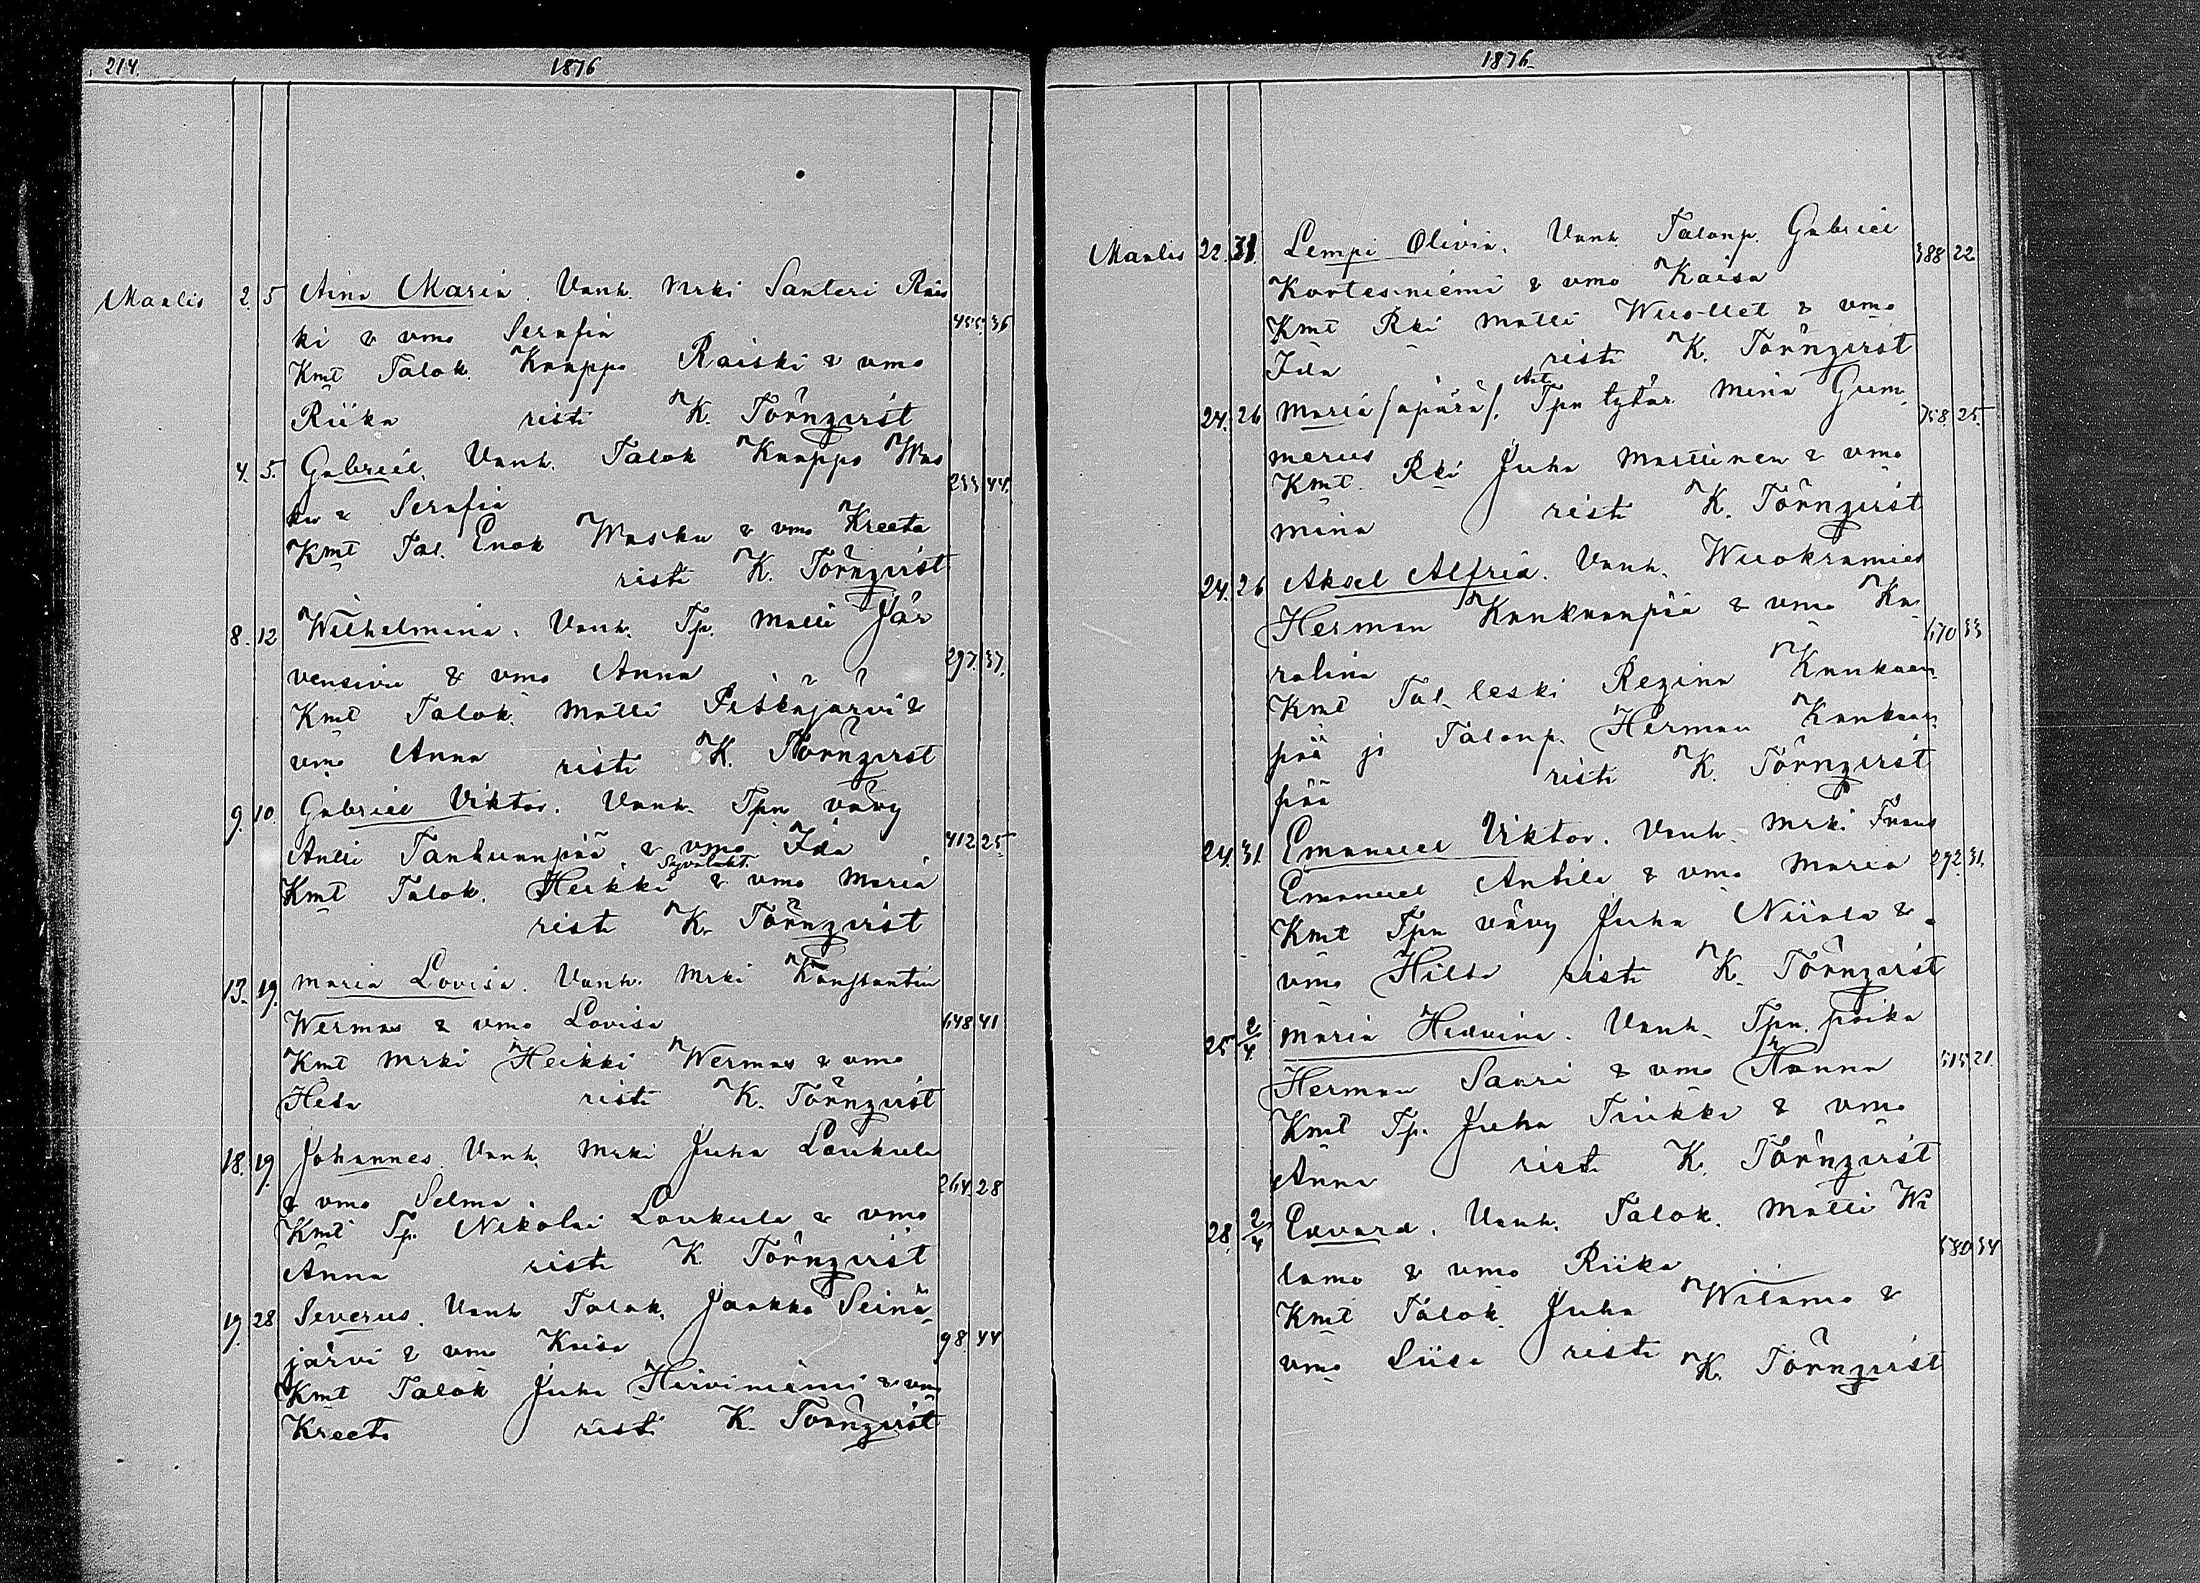 214.
1876
Maalis 2. 5 Aina Maria. Vanh. Mrki Santeri Rais
ki & vmo Serafia 455. 36
Kmt Talok. Kaappo Raiski & vmo
Riika risti K. Törnqvist
4. 5. Gabriel. Vanh. Talok Kaappo Was
ku & Serafia 233 44.
Kmt Tal. Enok Wasku & vmo Kreeta
risti K. Törnqvist
8. 12 Wilhelmina. Vanh. Tp. Matti Jär
vensivu & vmo Anna 297. 37.
Kmt Talok. Matti Pitkäjärvi &
vmo Anna risti K. Törnqvist
9. 10. Gabriel Viktor. Vanh. Tpn vävy
Antti Tanhuanpää & vmo Ida 412 25
Kmt Talok. Heikki Syvälaht. & vmo Maria
risti K. Törnqvist
13. 19. Maria Lovisa. Vanh. Mrki Konstantin
Wermas & vmo Lovisa 648 41
Kmt Mrki Heikki Wermas & vmo
Heta risti K. Törnqvist
18. 19. Johannes. Vanh. Mrki Juha Loukula
& vmo Selma. 264. 28
Kmt Tp. Nikolai Loukula & vmo
Anna risti K Törnqvist
19. 28 Severus. Vanh Talok. Jaakko Seinä
järvi & vmo Kaisa 98. 44
Kmt Talok Juha Hirviniemi & vmo
Kreeta risti K. Törnqvist
1876.
Maalis 22. 31. Lempi Olivia. Vanh. Talonp. Gabriel
Kortesniemi & vmo Kaisa 388 22
Kmt Rki Matti Wuollet & vmo
Ida risti K. Törnqvist
24. 26 Maria /äpärä/. Tpn tytär Mina Gum
merus 758 25.
Kmt. Rki Juha Martinen & vmo
Mina risti K. Törnqvist
24. 26 Aksel Alfred. Vanh. Wuokramies
Herman Kankaanpää & vmo Ka
rolina 670 33
Kmt Tal. leski Regina Kankaan
pää ja Talonp. Herman Kankaan
pää risti K. Törnqvist
24. 31. Emanuel Viktor. Vanh. Mrki Frans
Emanuel Antila & vmo Maria 292. 31.
Kmt Tpn vävy Juha Niiala &
vmo Hilda risti K. Törnqvist
25 2/4 Maria Hedvina. Vanh. Tpn. poika
Herman Saari & vmo Hanna 515 21.
Kmt Tp. Juha Triikki & vmo
Anna risti K. Törnqvist
28. 2/4 Edvard. Vanh. Talok. Matti Wi
lamo & vmo Riika 680 34
Kmt Talok. Juha Wilamo &
vmo Liisa risti K. Törnqvist